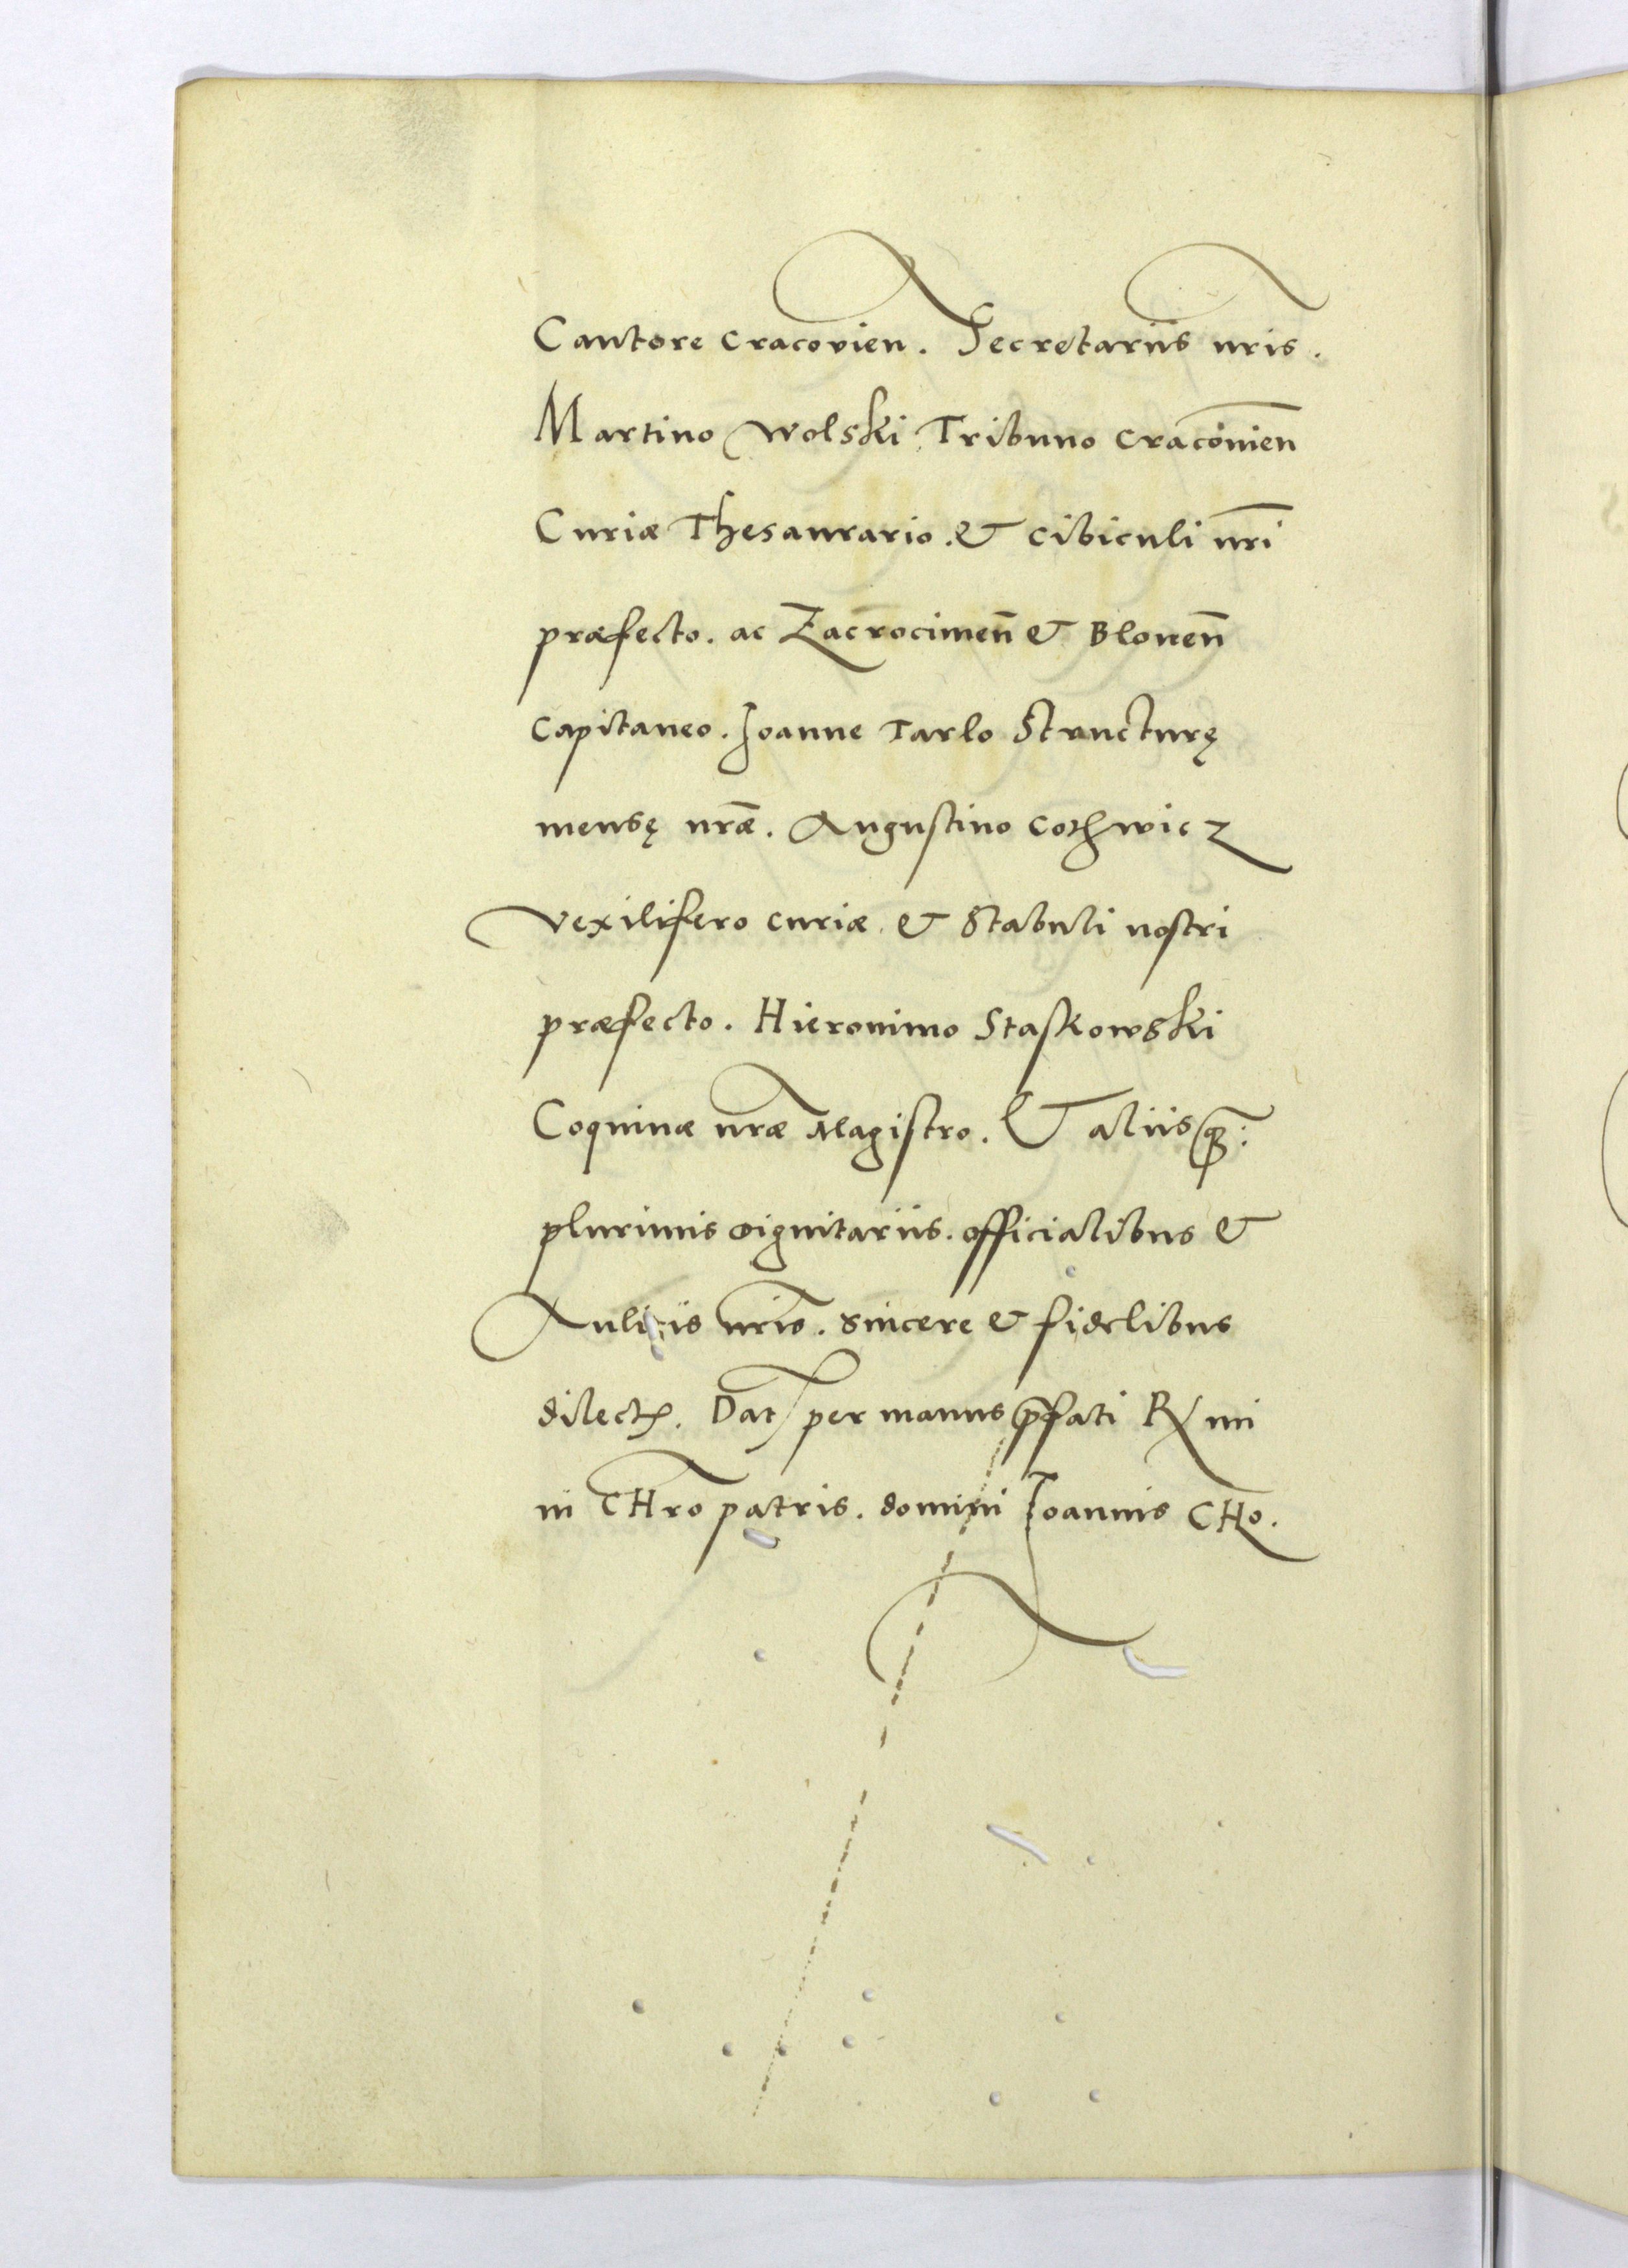 Cantore Cracovien. Secretariis nris.
Martino Wolski Tribuno Cracoūien
Curiæ Thesaurario. & cibiculi nr̄i
præfecto. ac Zacrocimen̄ & Blonen̄
Capitaneo. Joanne Tarlo Structurę
mensę nrǣ. Augustino Cothwicz
vexilifero curiæ & Stabuli nostri
præfecto. Hieronimo Staskowski
Coquinæ nræ Magistro. & aliisq̄:
plurimis dignitariis. officialibus &
Aulicis nris. sincere & fidelibus
dilect. Dat per manus p̄fati R mi
in CHro patris. domini Joannis CHo.